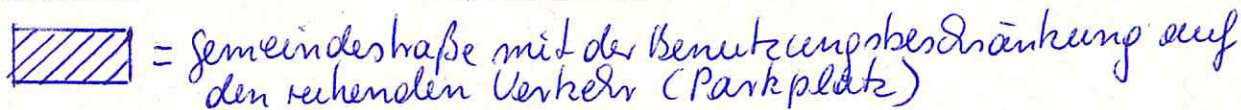 = Gemeindestraße mit der Benutzungsbeschränkung auf
den ruhenden Verkehr (Parkplatz)